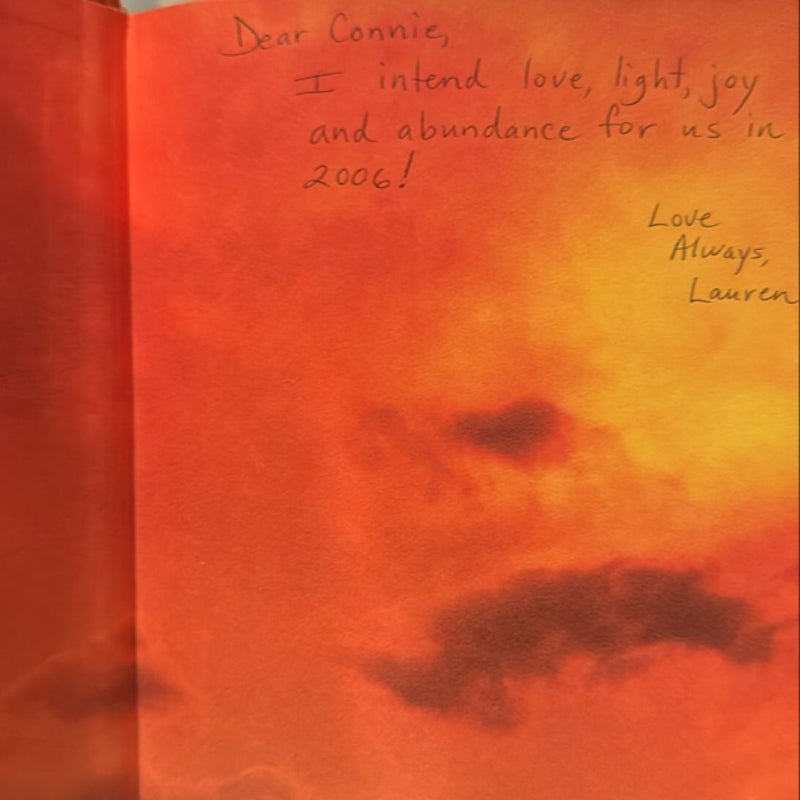 Dear Connie,
I intend love, light, joy
and abundance for us in
2006!
Love
Always,
Lauren